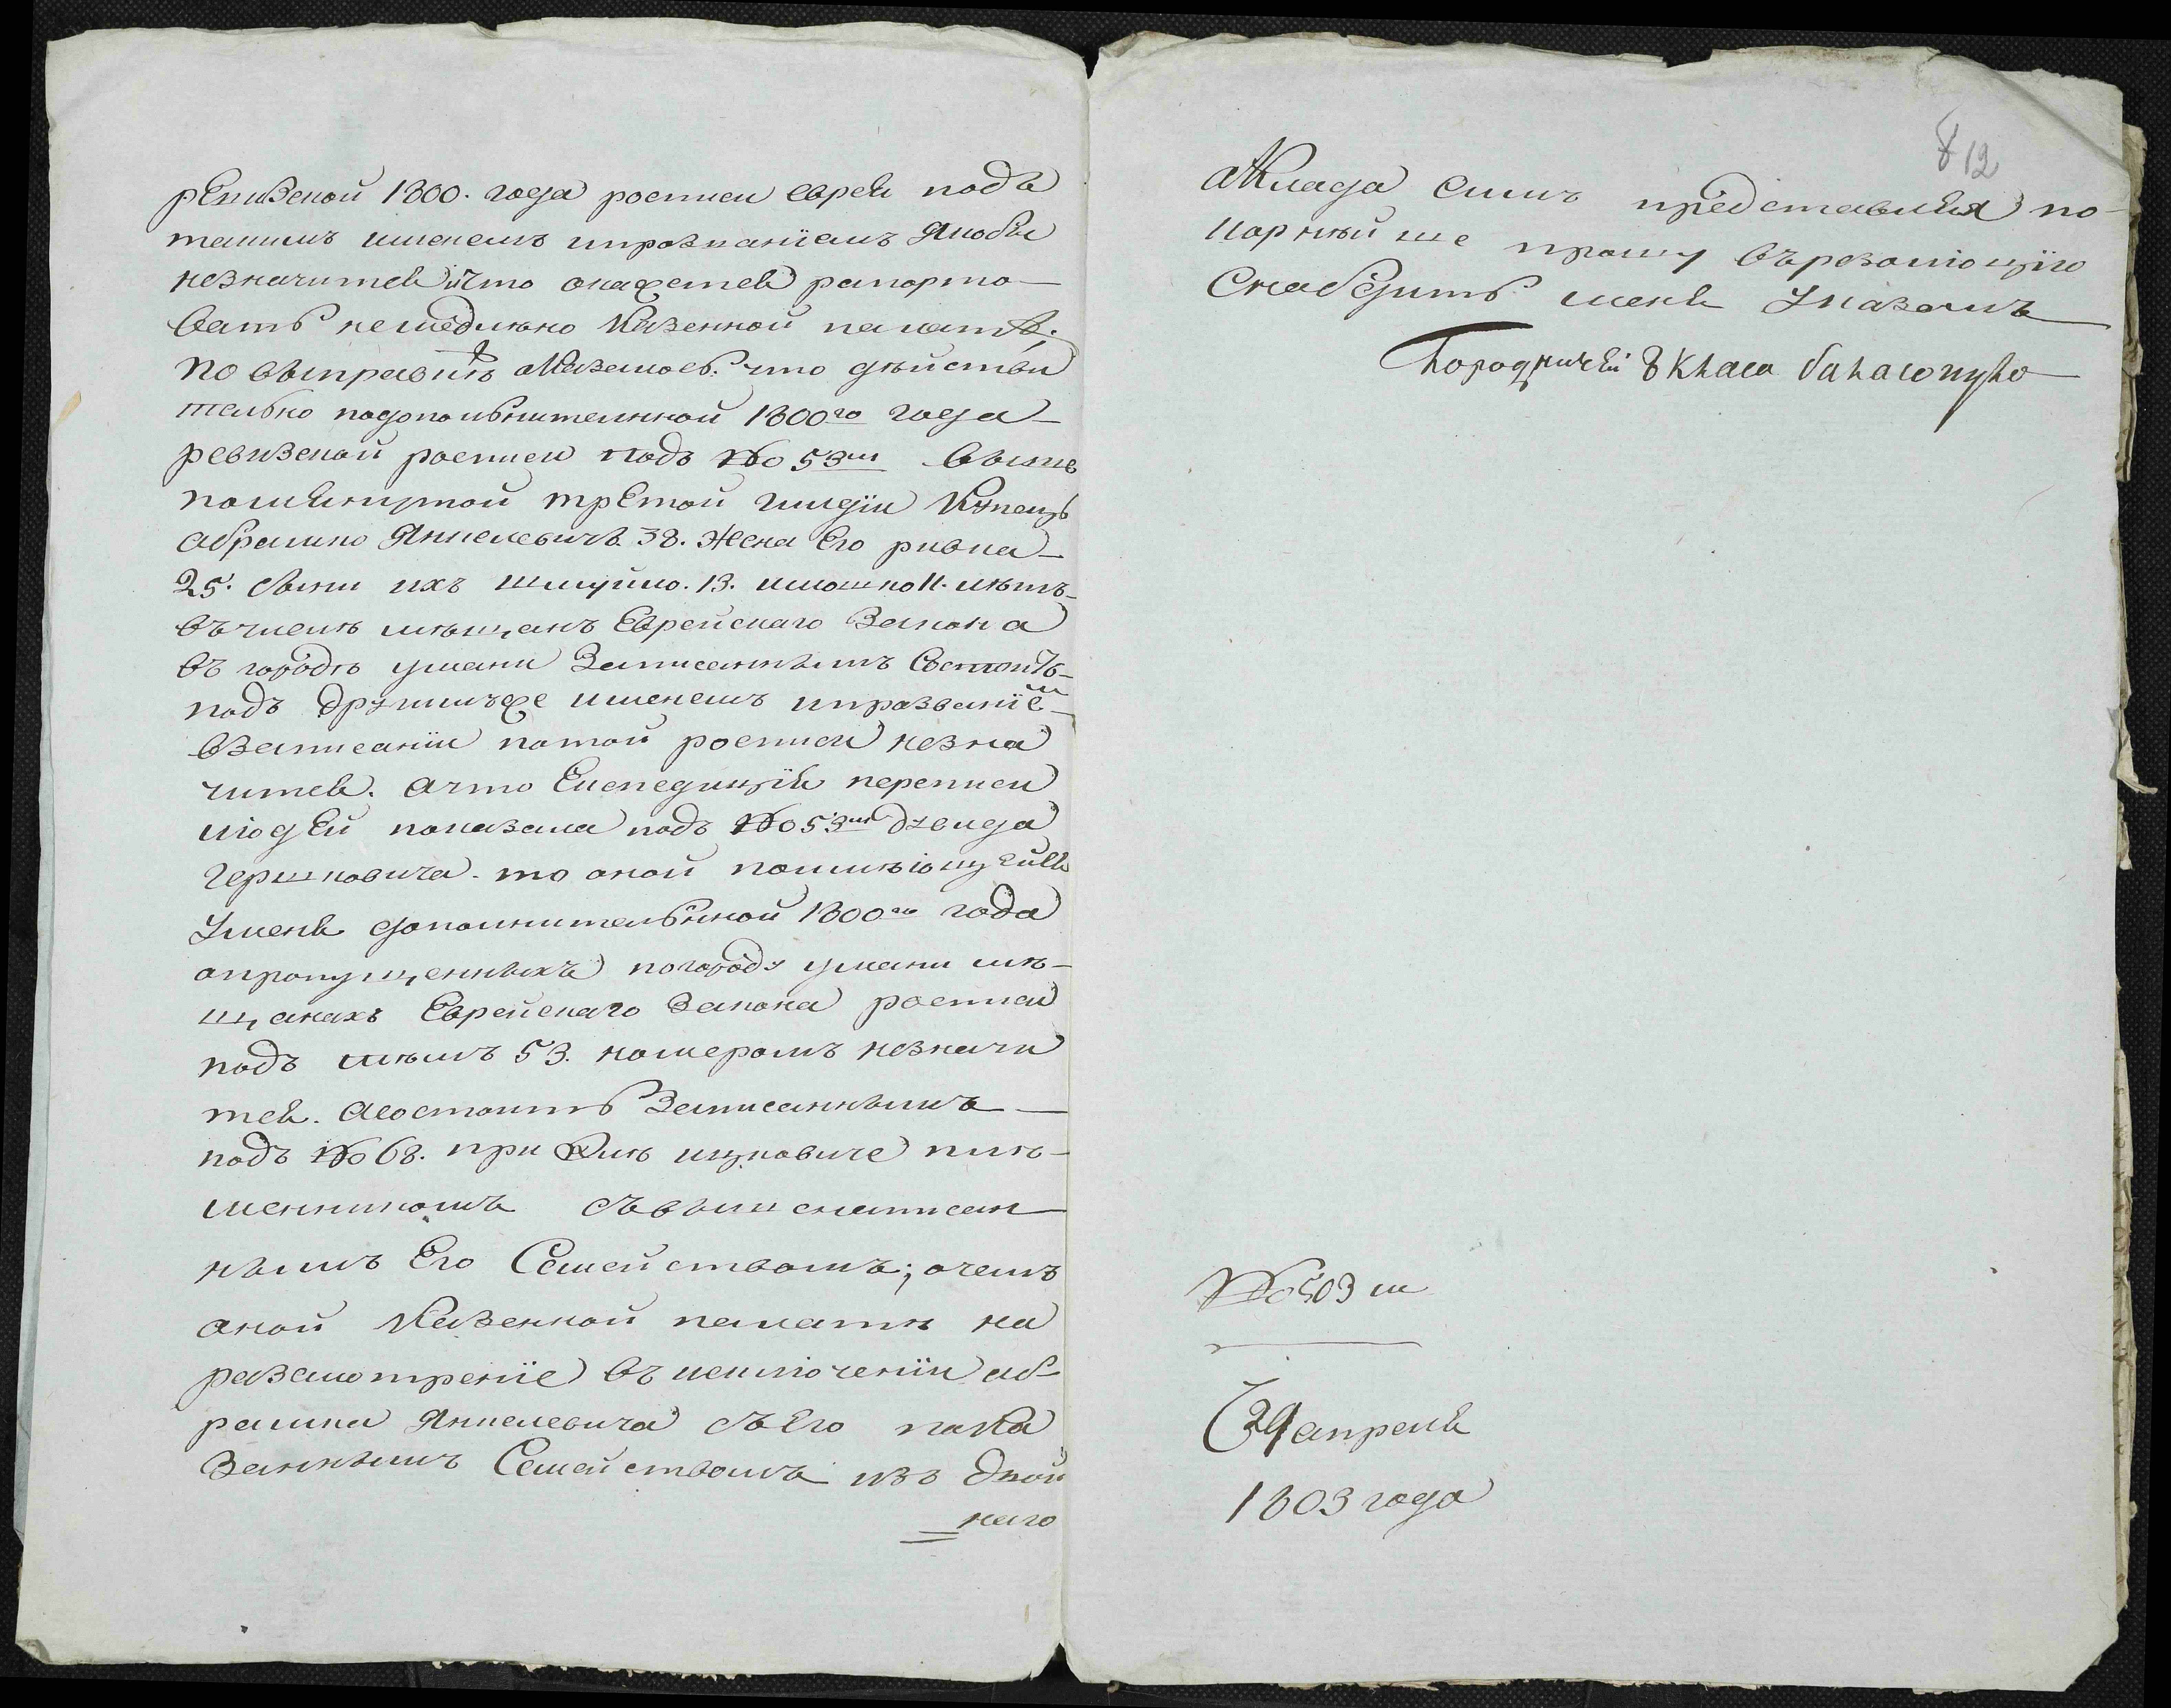 ревизской 1800. года росписи еврей подъ
такимъ именемъ ипрозванїемъ якобы
незначится ичто окажется рапорто-
вать немедленно казенной палатѣ;
По выправкѣ оказалось. что дѣйстви
тельно подополнительнной 1800го года
ревизской росписи подъ №о 53мъ выше
помянутой третой гилдїи купецъ
абрамко Янкелевичъ 38. жена Его ривка
25. сыни ихъ шмуйло. 13. имошко 11. лѣтъ-
въчислѣ мѣщанъ Еврейскаго Закона
въ городѣ умани Записаннымъ Состоитъ-
подъ другимъже именемъ ипрозванїемъ
взаписанїи потой росписи незна
чится. Ачто Експедицїи переписи
людей показала подъ №о 53мъ дувида
гершковича. то оной поимѣющейся
Уменя дополнительнной 1800го года
опропущенныхъ погороду умани мѣ-
щанахъ Еврейскаго Закона росписи
подъ тѣмъ 53. номеромъ незначи
тся. Асостоитъ Записаннымъ
подъ №о 68. при хилѣ ицковиче плѣ-
менникомъ Съвыше написан
нымъ Его Семействомъ; очемъ
оной Казенной палатѣ на
разсмотренїе въ исключенїи аб-
рамка Янкелевича съЕго пока
Заннымъ Семействомъ изъ двой
наго
812
оклада симъ представляя по-
корнѣйше прошу върезолюцїю
Снабдить меня Указомъ
Городничей 8 класа
№о 503 м
29 апреля
1803 года